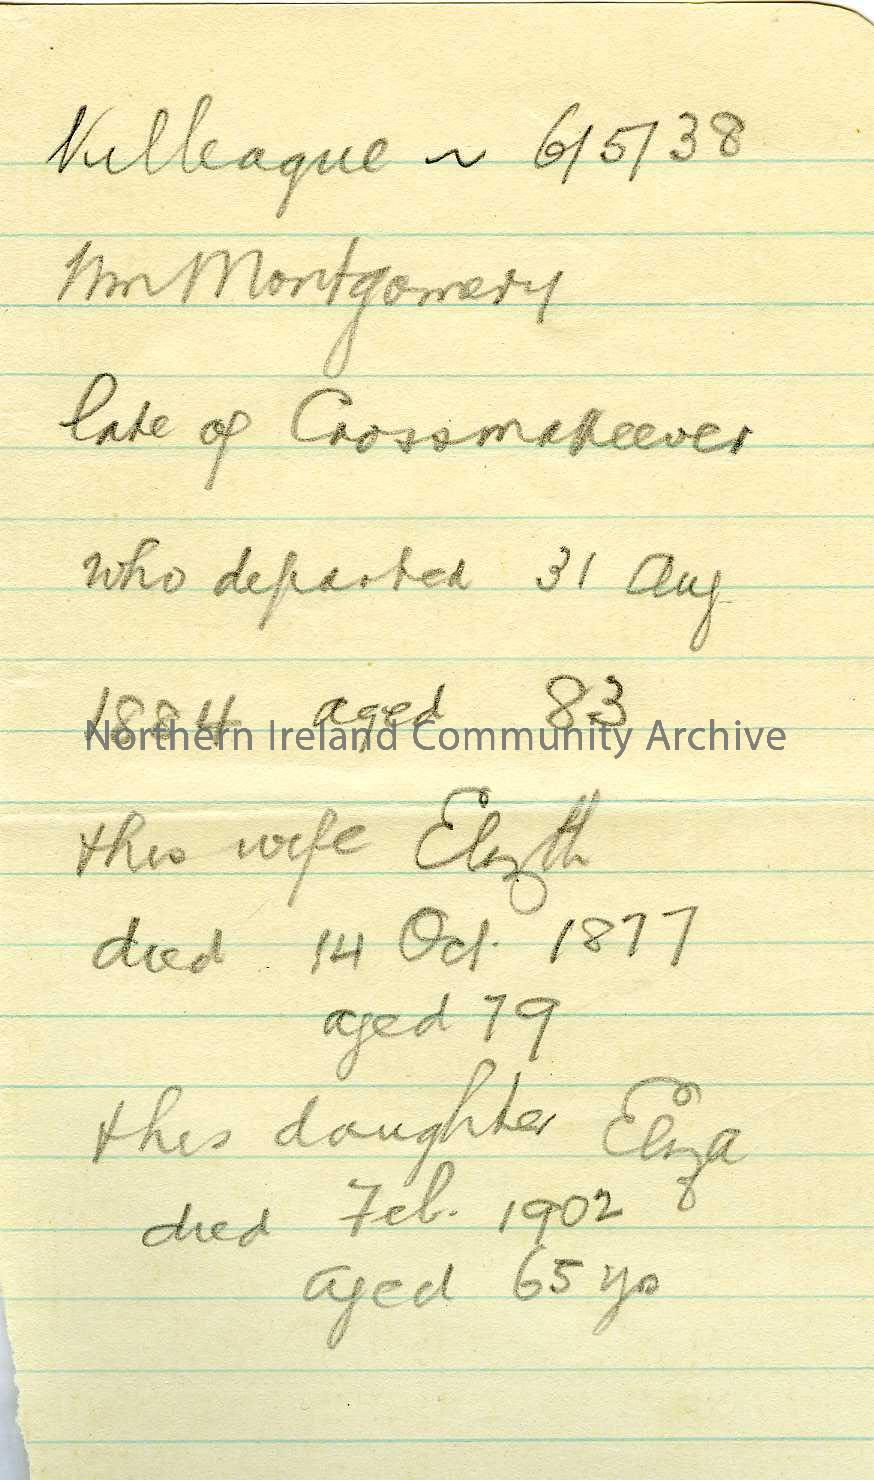 Killeague ~ 6/5/38
Wm Montgomery
late of Crossmakeever
who departed 31 Aug
1884 aged 83
Northern Ireland Community Archive
+his wife Elizth
died 14 Oct. 1877
aged 79
+his daughter Eliza
died Feb. 1902
aged 65 ys